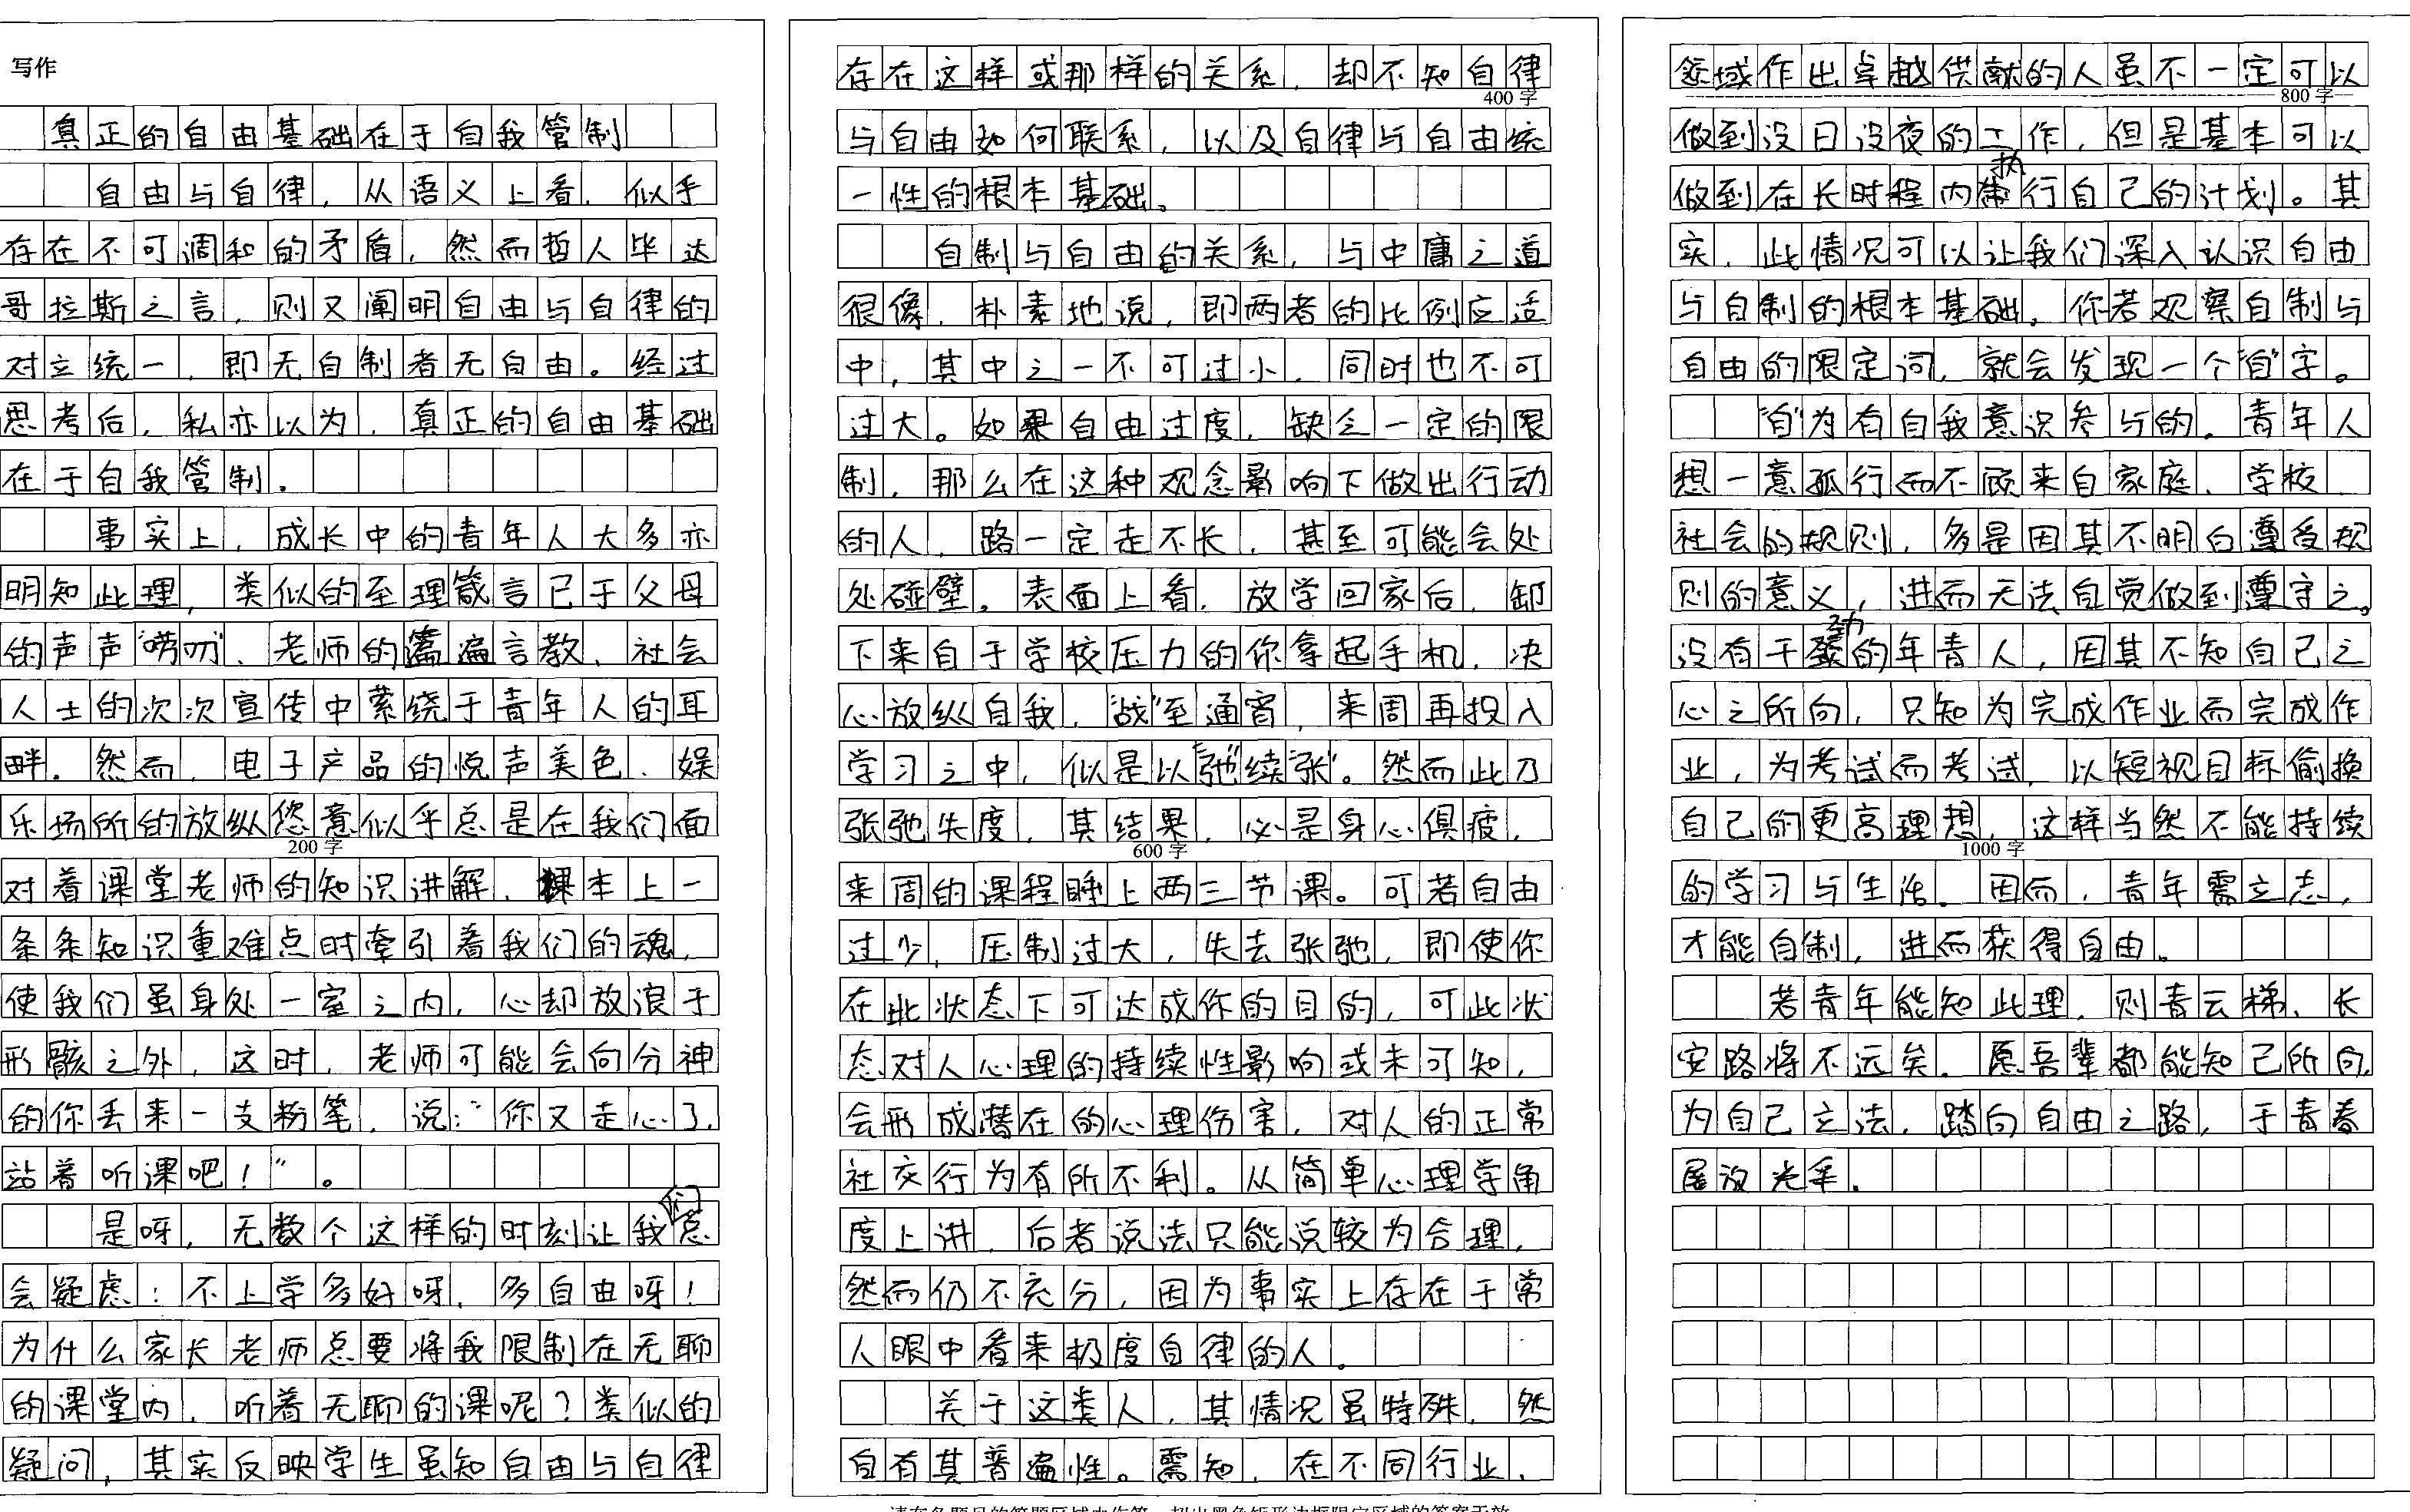 写作
真正的自由基础在于自我管制
自由与自律，从语义上看，似乎
存在不可调和的矛盾，然而哲人毕达
哥拉斯之言，则又阐明自由与自律的
对立统一，即无自制者无自由。经过
思考后，私亦以为，真正的自由基础
在于自我管制。
事实上，成长中的青年人大多亦
明知此理，类似的至理箴言已于父母
的声声“唠叨”、老师的篇遍言教、社会
人士的次次宣传中萦绕于青年人的耳
畔。然而，电子产品的悦声美色、娱
乐场所的放纵恣意似乎总是在我们面
200字
对着课堂老师的知识讲解、课本上一
条条知识重难点时牵引着我们的魂，
使我们虽身处一室之内，心却放浪于
形骸之外，这时，老师可能会向分神
的你丢来一支粉笔，说：“你又走心了，
站着听课吧！”。
是呀，无数个这样的时刻让我们总
会疑虑：不上学多好呀，多自由呀！
为什么家长老师总要将我限制在无聊
的课堂内，听着无聊的课呢？类似的
疑问，其实反映学生虽知自由与自律
存在这样或那样的关系，却不知自律
400字
与自由如何联系，以及自律与自由统
一性的根本基础。
自制与自由的关系，与中庸之道
很像，朴素地说，即两者的比例应适
中，其中之一不可过小，同时也不可
过大。如果自由过度，缺乏一定的限
制，那么在这种观念影响下做出行动
的人，路一定走不长，甚至可能会处
处碰壁。表面上看，放学回家后，卸
下来自于学校压力的你拿起手机，决
心放纵自我，“战”至通宵，来周再投入
学习之中，似是以“弛”续“张”。然而此乃
张弛失度，其结果，必是身心俱疲，
600字
来周的课程睡上两三节课。可若自由
过少，压制过大，失去张弛，即使你
在此状态下可达成你的目的，可此状
态对人心理的持续性影响或未可知，
会形成潜在的心理伤害，对人的正常
社交行为有所不利。从简单心理学角
度上讲，后者说法只能说较为合理，
然而仍不充分，因为事实上存在于常
人眼中看来极度自律的人。
关于这类人，其情况虽特殊，然
自有其普遍性。需知，在不同行业、
领域作出卓越供献的人虽不一定可以
800字
做到没日没夜的工作，但是基本可以
做到在长时程内执行自己的计划。其
实，此情况可以让我们深入认识自由
与自制的根本基础，你若观察自制与
自由的限定词，就会发现一个“自”字。
“自”为有自我意识参与的。青年人
想一意孤行而不顾来自家庭、学校
社会的规则，多是因其不明白遵受规
则的意义，进而无法自觉做到遵守之。
没有干劲的年青人，因其不知自己之
心之所向，只知为完成作业而完成作
业，为考试而考试，以短视目标偷换
自己的更高理想，这样当然不能持续
1000字
的学习与生活。因而，青年需立志，
才能自制，进而获得自由。
若青年能知此理，则青云梯、长
安路将不远矣。愿吾辈都能知己所向，
为自己立法，踏向自由之路，于青春
展放光采。